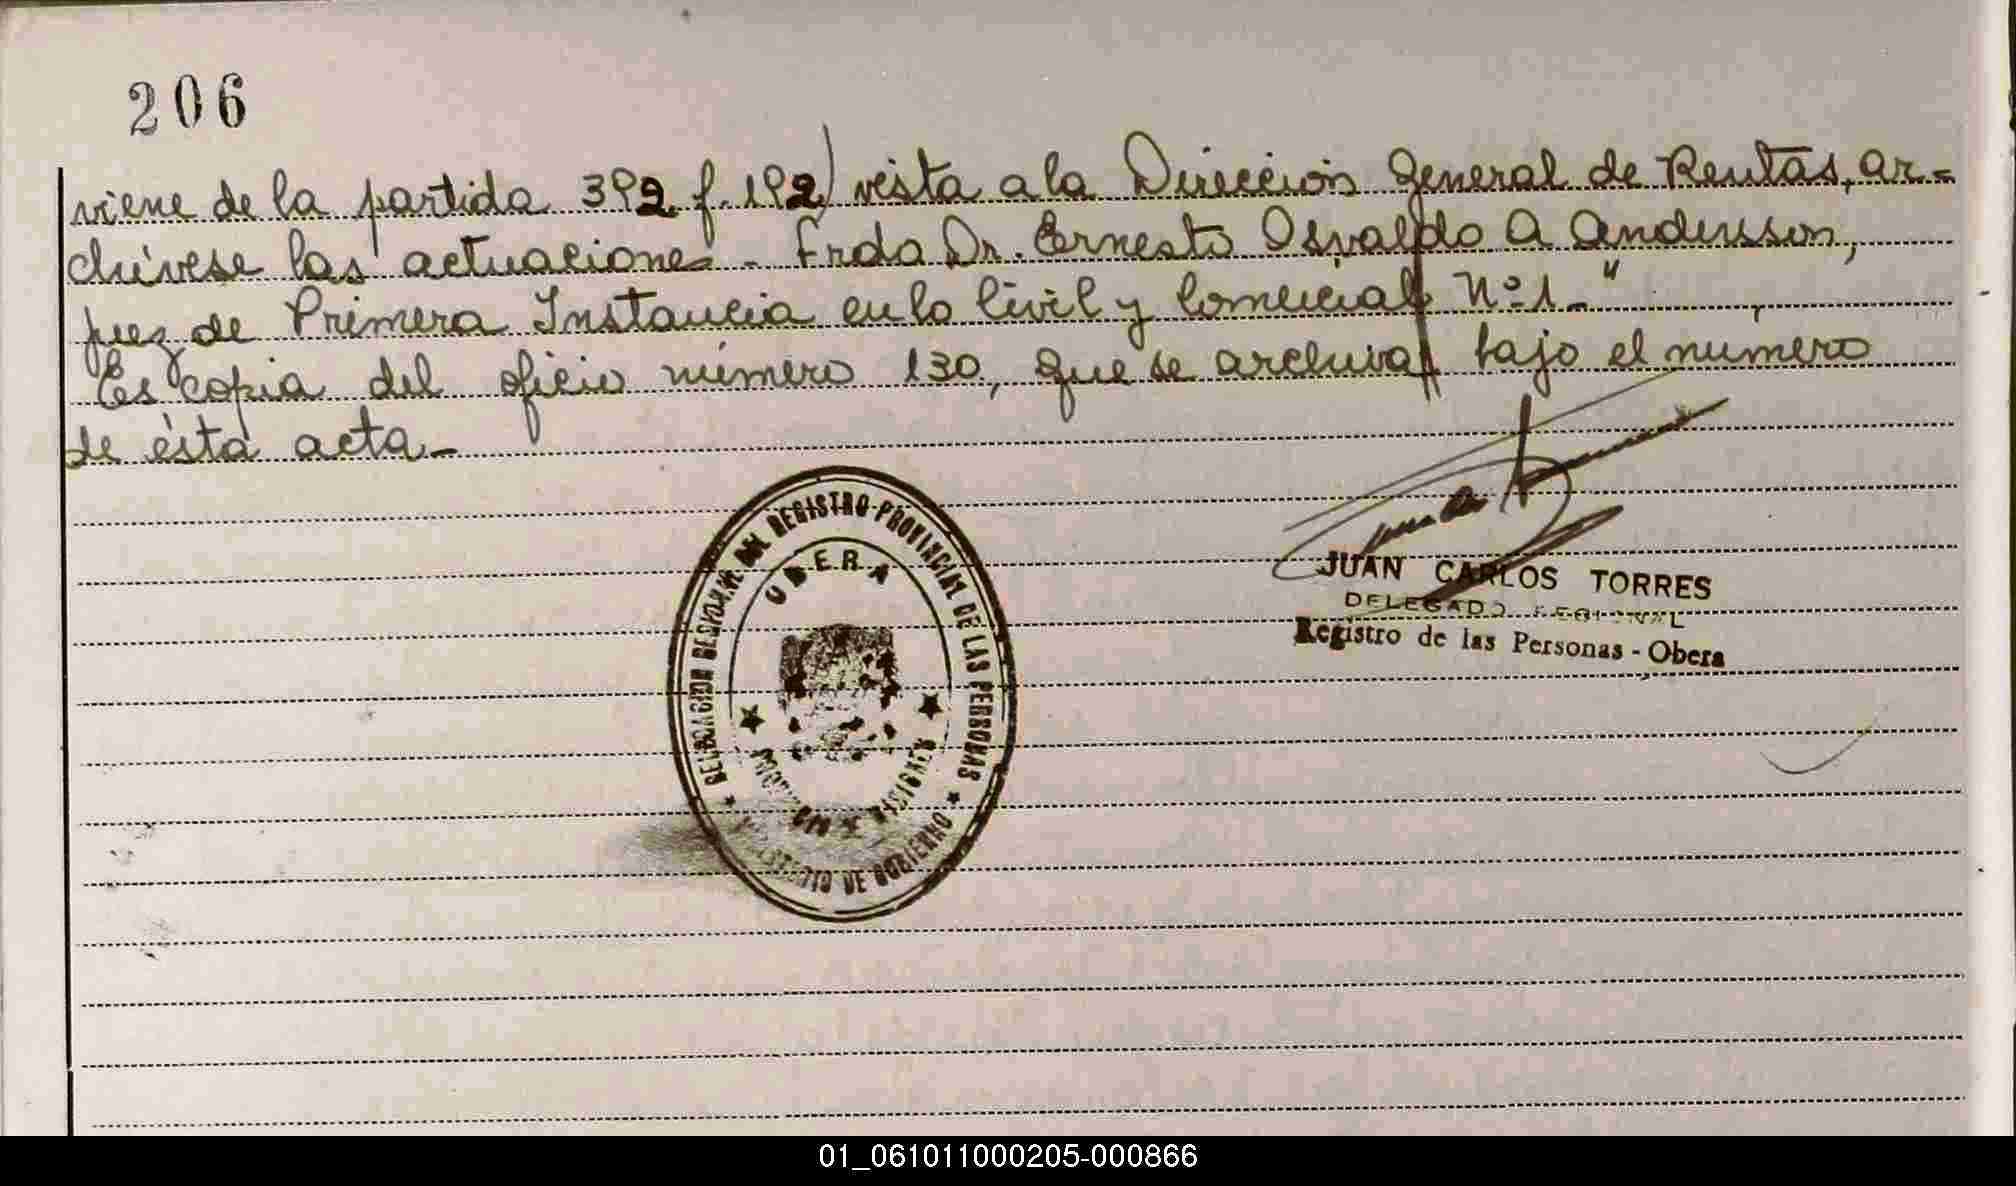 206
viene de la partida 392 f. 192) vista a la Dirección General de Rentas, ar=
chívese las actuaciones - Frda Dr. Ernesto Osvaldo A Andersson,
juez de Primera Instancia en lo Civil y Comercial Nº 1 - "
Es copia del oficio número 130, que se archiva bajo el número
de ésta acta -
DELEGACION REGIONAL DEL REGISTRO PROVINCIAL DE LAS PERSONAS
OBERA
PROVINCIA DE MISIONES
MINISTERIO DE GOBIERNO
JUAN CARLOS TORRES
DELEGADO REGIONAL
Registro de las Personas - Obera
01_061011000205-000866